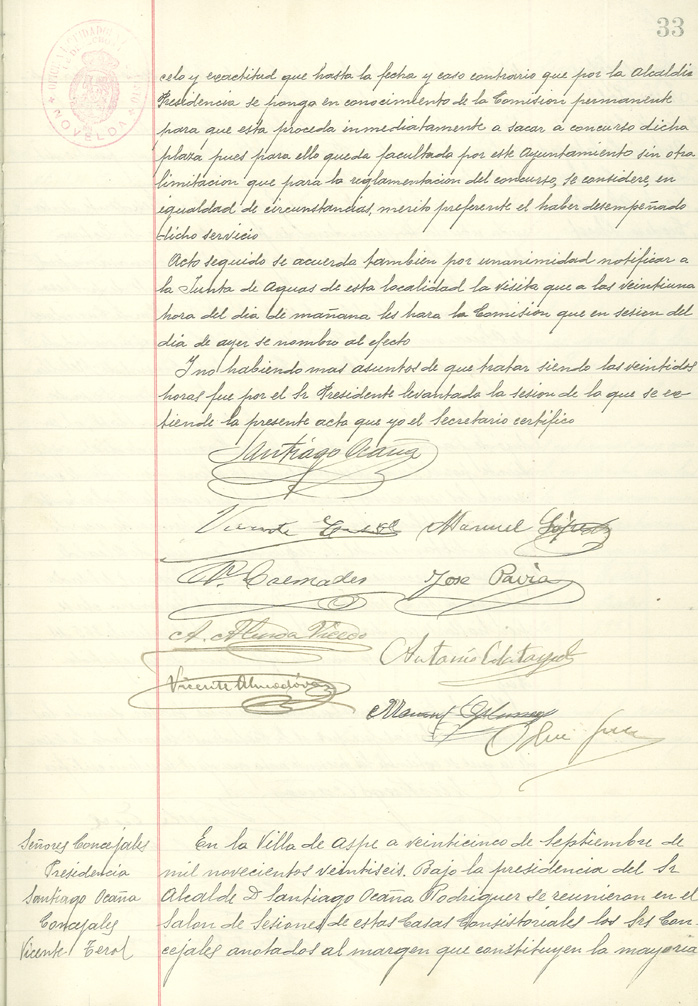 33
NOVELDA
celo y exactitud que hasta la fecha y caso contrario que por la Alcaldia
Presidencia se ponga en conocimiento de la Comision permanente
para que esta proceda inmediatamente a sacar a concurso dicha
plaza pues para ello queda facultado por este Ayuntamiento sin otra
limitacion que para la reglamentacion del concurso, se considere, en
igualdad de circunstancias, merito preferente el haber desempeñado
dicho servicio
Acto seguido se acuerda tambien por unanimidad notificar a
la Junta de Aguas de esta localidad la visita que a las veintiuna
hora del dia de mañana les hara la Comision que en sesion del
dia de ayer se nombro al efecto
I no habiendo mas asuntos de que tratar siendo las veintidos
horas fue por el Sr Presidente levantada la sesion de la que se ex
tiende la presente acta que yo el Secretario certifico
Santiago Ocaña
Vicente Manuel
Cremades Jose Pavia
A. Almodovar
Antonio
Vicente Almodóvar
Manuel
Señores Concejales
Presidencia
Santiago Ocaña
Concejales
Vicente Terol
En la Villa de Aspe a veinticinco de Septiembre de
mil novecientos veintiseis. Bajo la presidencia del Sr
Alcalde D Santiago Ocaña Rodriguez se reunieron en el
Salon de Sesiones de estas Casas Consistoriales los Srs Con-
cejales anotados al margen que constituyen la mayoria